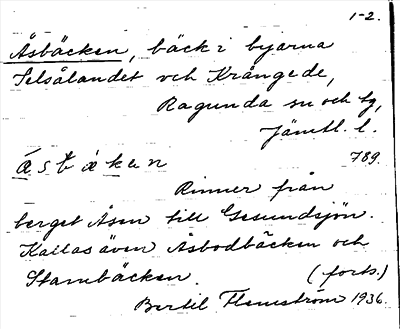 1-2.
Åsbäcken, bäck i byarna
Selsålandet och Krångede,
Ragunda sn och tg,
Jämtl. l.
789.
Rinner från
berget Åsen till Gesundsjön.
Kallas även Åsbodbäcken och
Stambäcken. (forts.)
Bertil Flemström 1936.